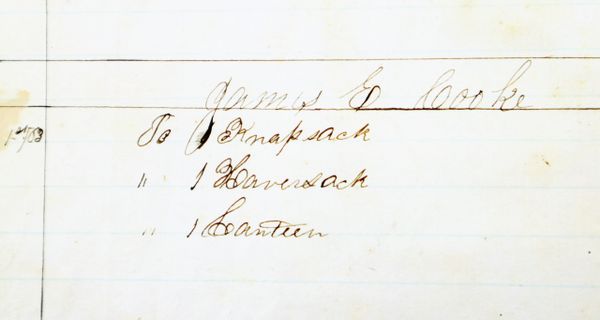 James E Cooke
To 1 Knapsack
" 1 Haversack
" 1 Canteen